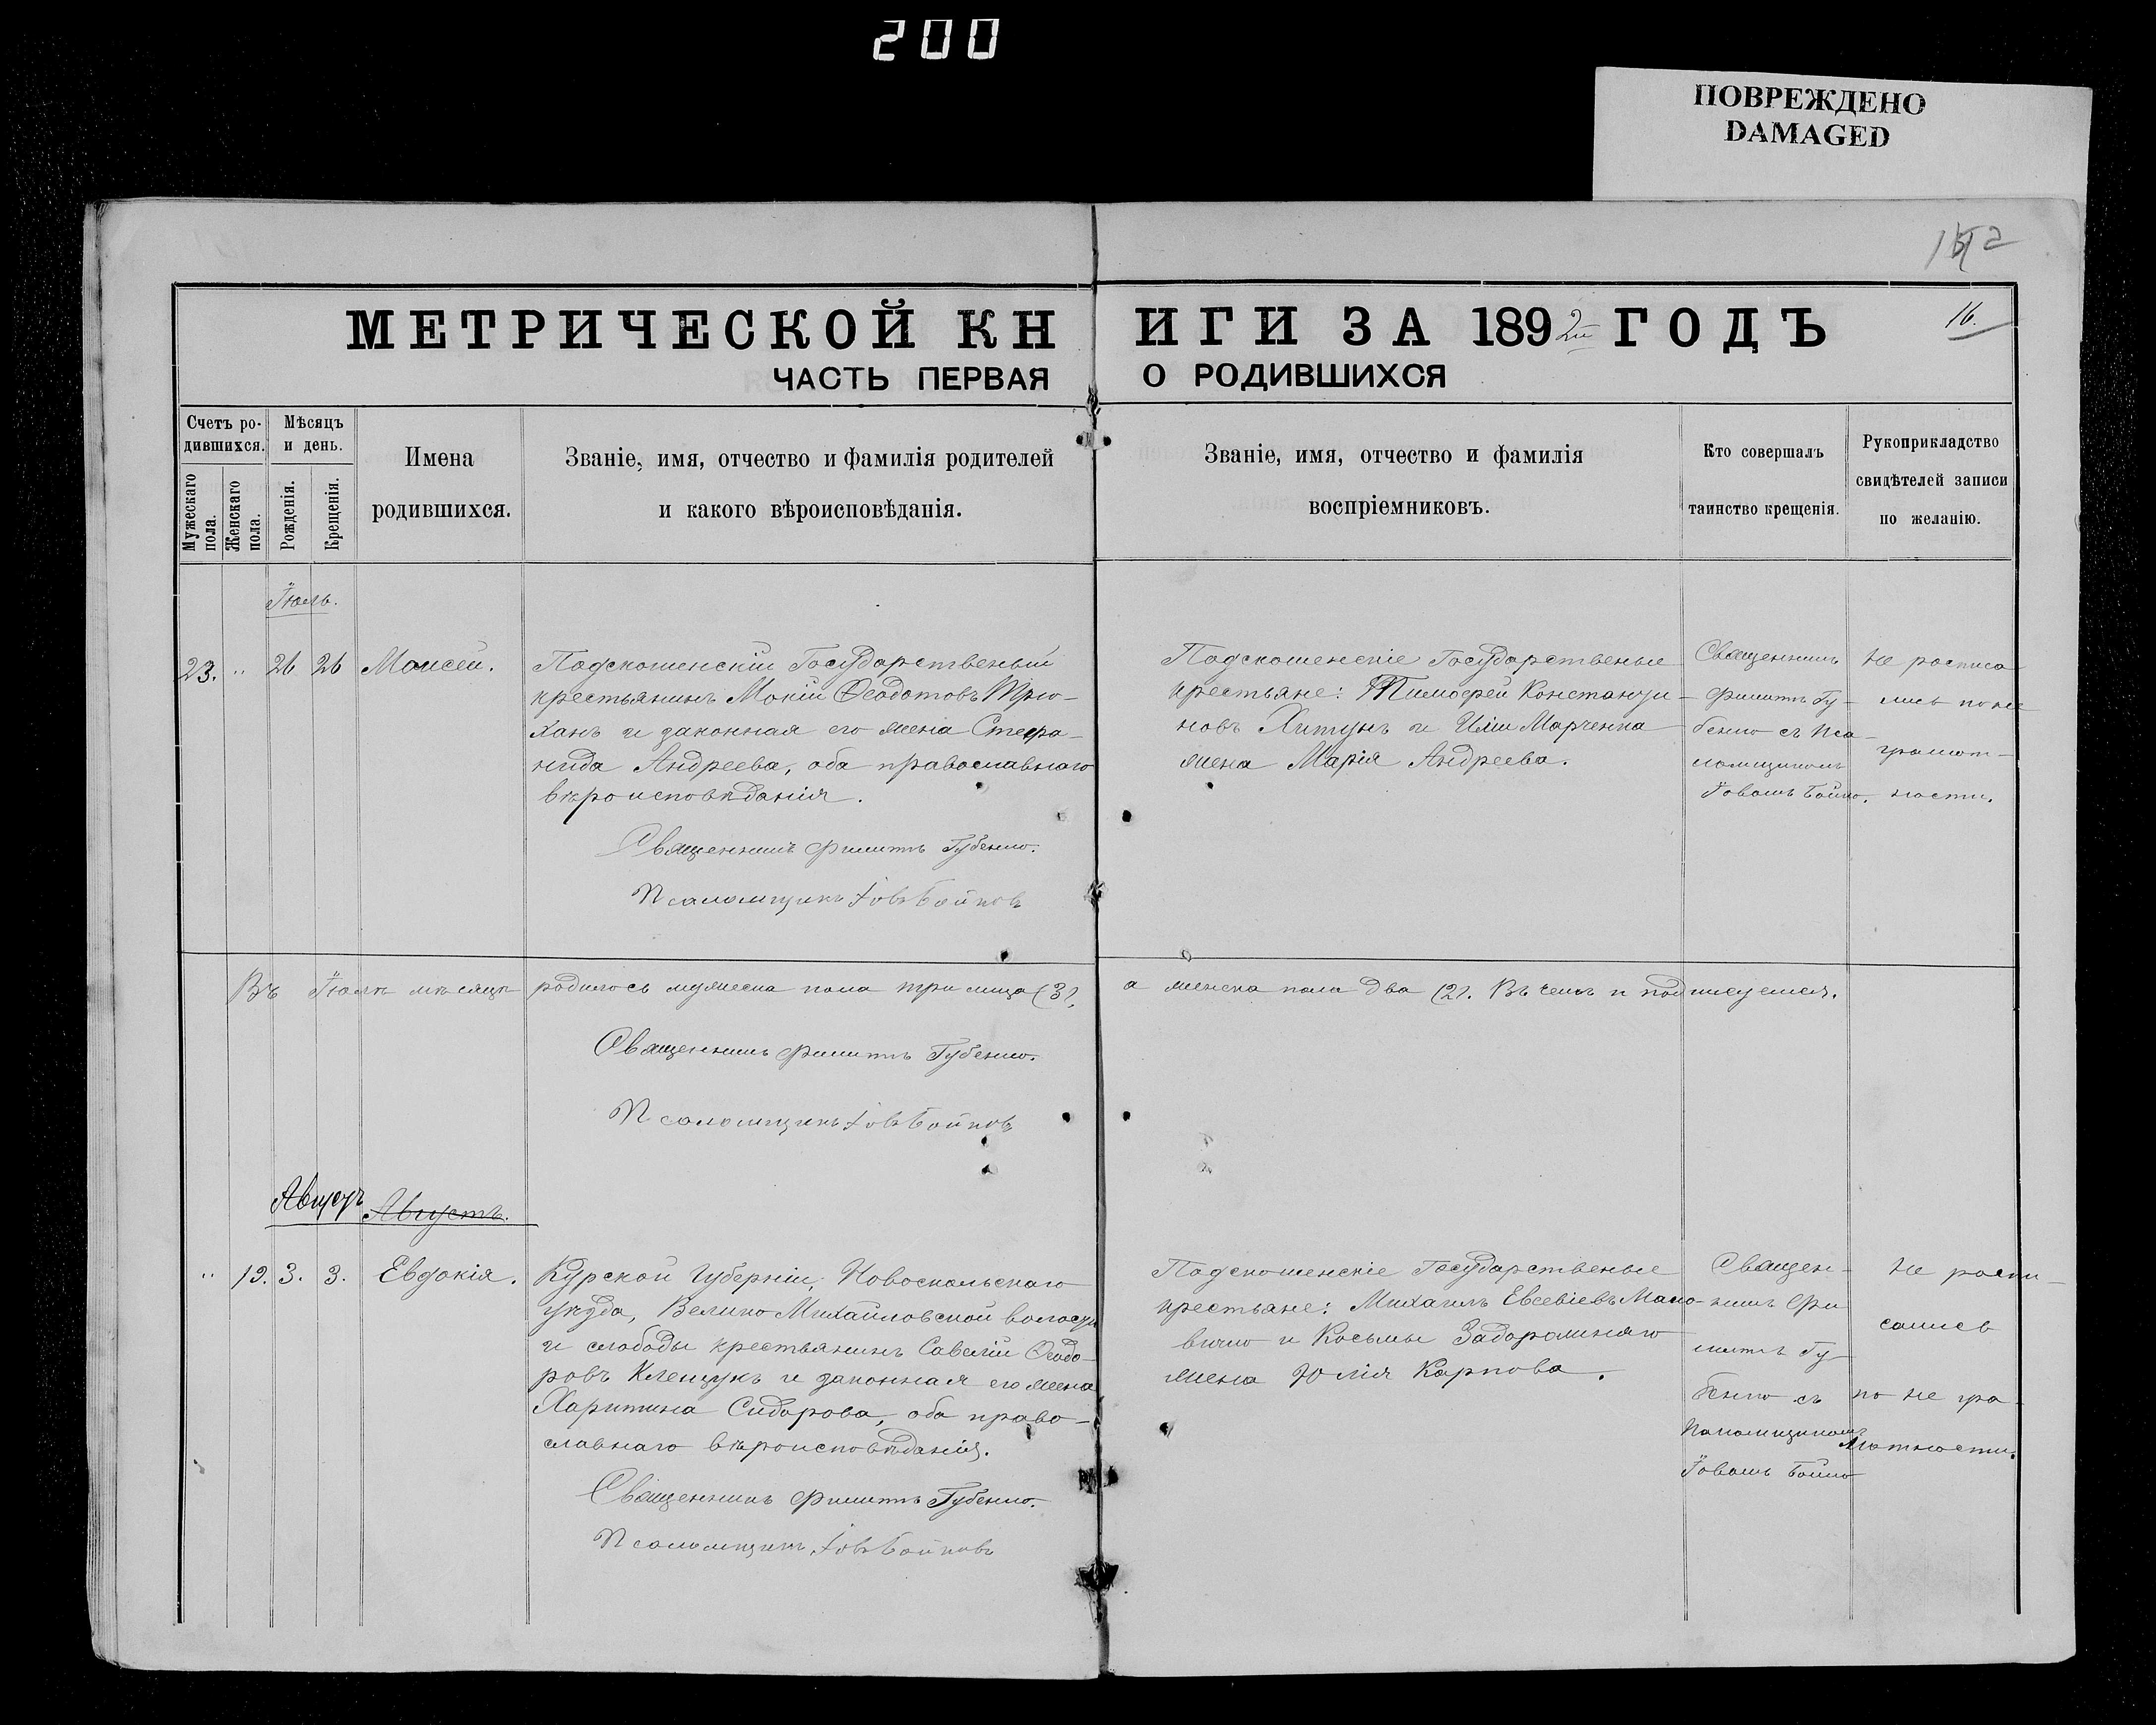 200
ПОВРЕЖДЕНО
DAMAGED
16.
МЕТРИЧЕСКОЙ КНИГИ ЗА 1892й ГОДЪ
ЧАСТЬ ПЕРВАЯ О РОДИВШИХСЯ
Счетъ родившихся.
Мужескаго пола.
Женскаго пола.
Мѣсяцъ и день.
Рожденія.
Крещенія.
Имена
родившихся.
Званіе, имя, отчество и фамилія родителей
и какого вѣроисповѣданія.
Званіе, имя, отчество и фамилія
воспріемниковъ.
Кто совершалъ
таинство крещенія.
Рукоприкладство
свидѣтелей записи
по желанію.
Іюль.
23. " 26 26 Моисей.
Подскошенскій Государственый
крестьянинъ Мокій Ѳеодотовъ Трю-
ханъ и законная его жена Стефа-
нида Андреева, оба православнаго
вѣроисповѣданія.
Священникъ Филиппъ Губенко.
Псаломщикъ Іовъ Бойковъ
Подскошенскіе Государственые
крестьяне: Тимоѳей Константи-
новъ Хитунъ и Иліи Марченка
жена Марія Андреева.
Священникъ
Филиппъ Гу-
бенко съ Пса-
ломщикомъ
Іовомъ Бойко.
Не росписа-
лись по не
грамот-
ности.
Въ Іюлѣ мѣсяцѣ родилось мужеска пола три лица (3), а женска пола два (2). Въ чемъ и подписуемся.
Священникъ Филиппъ Губенко.
Псаломщикъ Іовъ Бойковъ
Августъ Августъ.
" 19. 3. 3. Евдокія.
Курской Губерніи, Новоскольскаго
уѣзда, Велико Михайловской волости
и слободы крестьянинъ Савелій Ѳеодо-
ровъ Клещукъ и законная его жена
Харитина Сидорова, оба право-
славнаго вѣроисповѣданія.
Священникъ Филиппъ Губенко.
Псаломщикъ Іовъ Бойковъ
Подскошенскіе Государственые
крестьяне: Михаилъ Евсевіевъ Мако-
вичко и Косьмы Задорожняго
жена Юлія Карпова.
Священ-
никъ Фи
липпъ Гу-
бенко съ
Псаломщикомъ
Іовомъ Бойко
Не роспи-
сались
по не гра-
мотности.